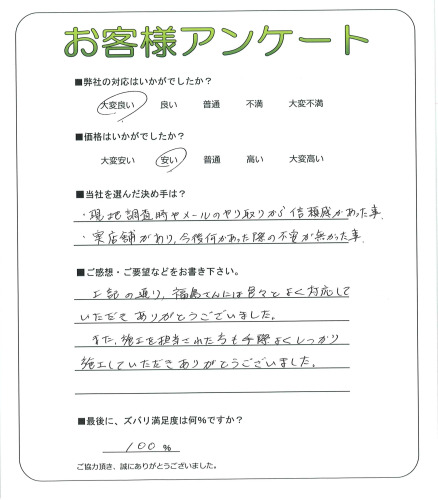 お客様アンケート
■弊社の対応はいかがでしたか？
大変良い 良い 普通 不満 大変不満
■価格はいかがでしたか？
大変安い 安い 普通 高い 大変高い
■当社を選んだ決め手は？
・現地調査時やメールのやり取りから信頼感があった事.
・実店舗があり,今後何かあった際の不安が無かった事.
■ご感想・ご要望などをお書き下さい。
上記の通り,福島さんには色々とよく対応して
いただきありがとうございました。
また,施工を担当された方も手際よくしっかり
施工していただきありがとうございました。
■最後に、ズバリ満足度は何%ですか？
100 %
ご協力頂き、誠にありがとうございました。